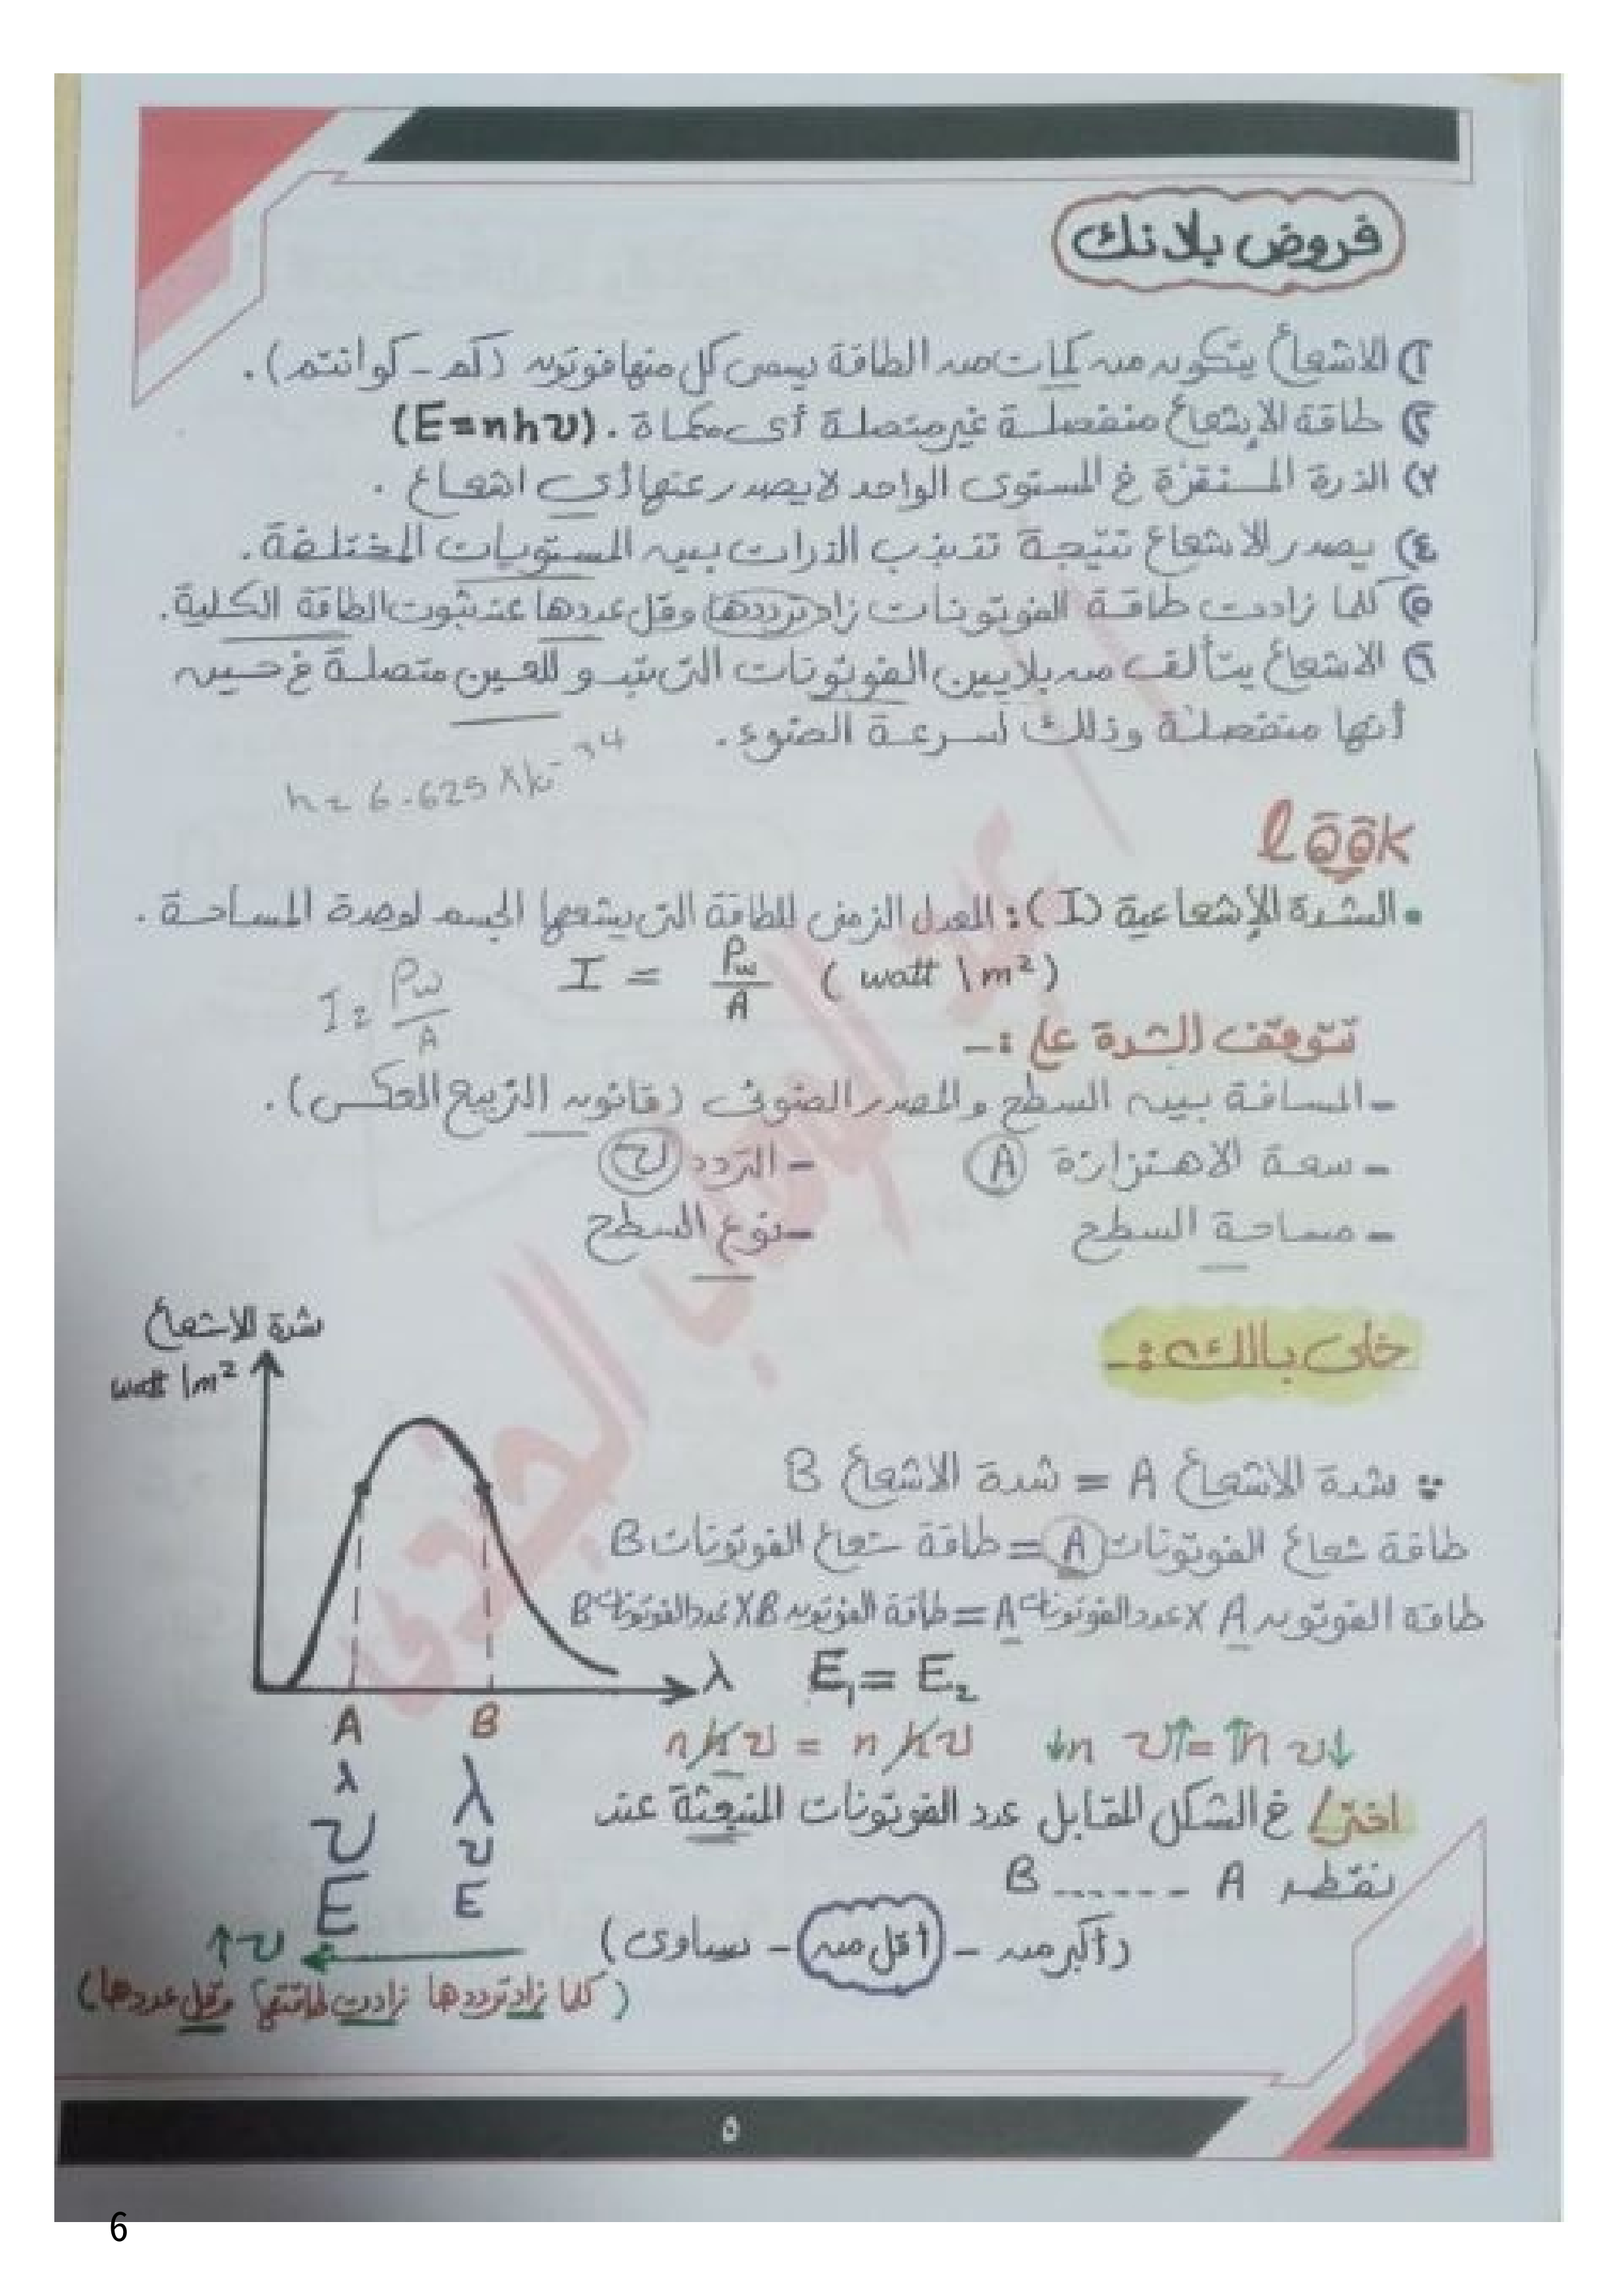 فروض بلانك
١) الاشعاع يتكون من كمات من الطاقة يسمى كل منها فوتون (كم - كوانتم).
٢) طاقة الإشعاع منفصلة غير متصلة أى مكماة. (E=nhυ)
٣) الذرة المستقرة فى المستوى الواحد لا يصدر عنها أي اشعاع.
٤) يصدر الاشعاع نتيجة تذبذب الذرات بين المستويات المختلفة.
٥) كلما زادت طاقة الفوتونات زاد ترددها وقل عددها عند ثبوت الطاقة الكلية.
٦) الاشعاع يتألف من بلايين الفوتونات التى تبدو للعين متصلة فى حين
أنها منفصلة وذلك لسرعة الضوء.
h = 6.625 X 10⁻³⁴
look
• الشدة الإشعاعية (I): المعدل الزمنى للطاقة التى يشعها الجسم لوحدة المساحة.
I = Pw/A (watt \m²)
I = Pw/A
تتوقف الشدة على :-
- المسافة بين السطح والمصدر الضوئى (قانون التربيع العكسى).
- سعة الاهتزازة A - التردد υ
- مساحة السطح - نوع السطح
خلى بالك :-
شدة الاشعاع
watt \m²
∵ شدة الاشعاع A = شدة الاشعاع B
طاقة شعاع الفوتونات A = طاقة شعاع الفوتونات B
طاقة الفوتون A X عدد الفوتونات A = طاقة الفوتون B X عدد الفوتونات B
λ E₁ = E₂
A B
nhυ = nhυ ↓n υ↑ = ↑n υ↓
λ λ
υ υ
E E
اختر/ فى الشكل المقابل عدد الفوتونات المنبعثة عند
A ...... B
(أكبر من - أقل من - يساوى)
↑υ
(كلما زاد ترددها زادت طاقتها وقل عددها)
٥
6